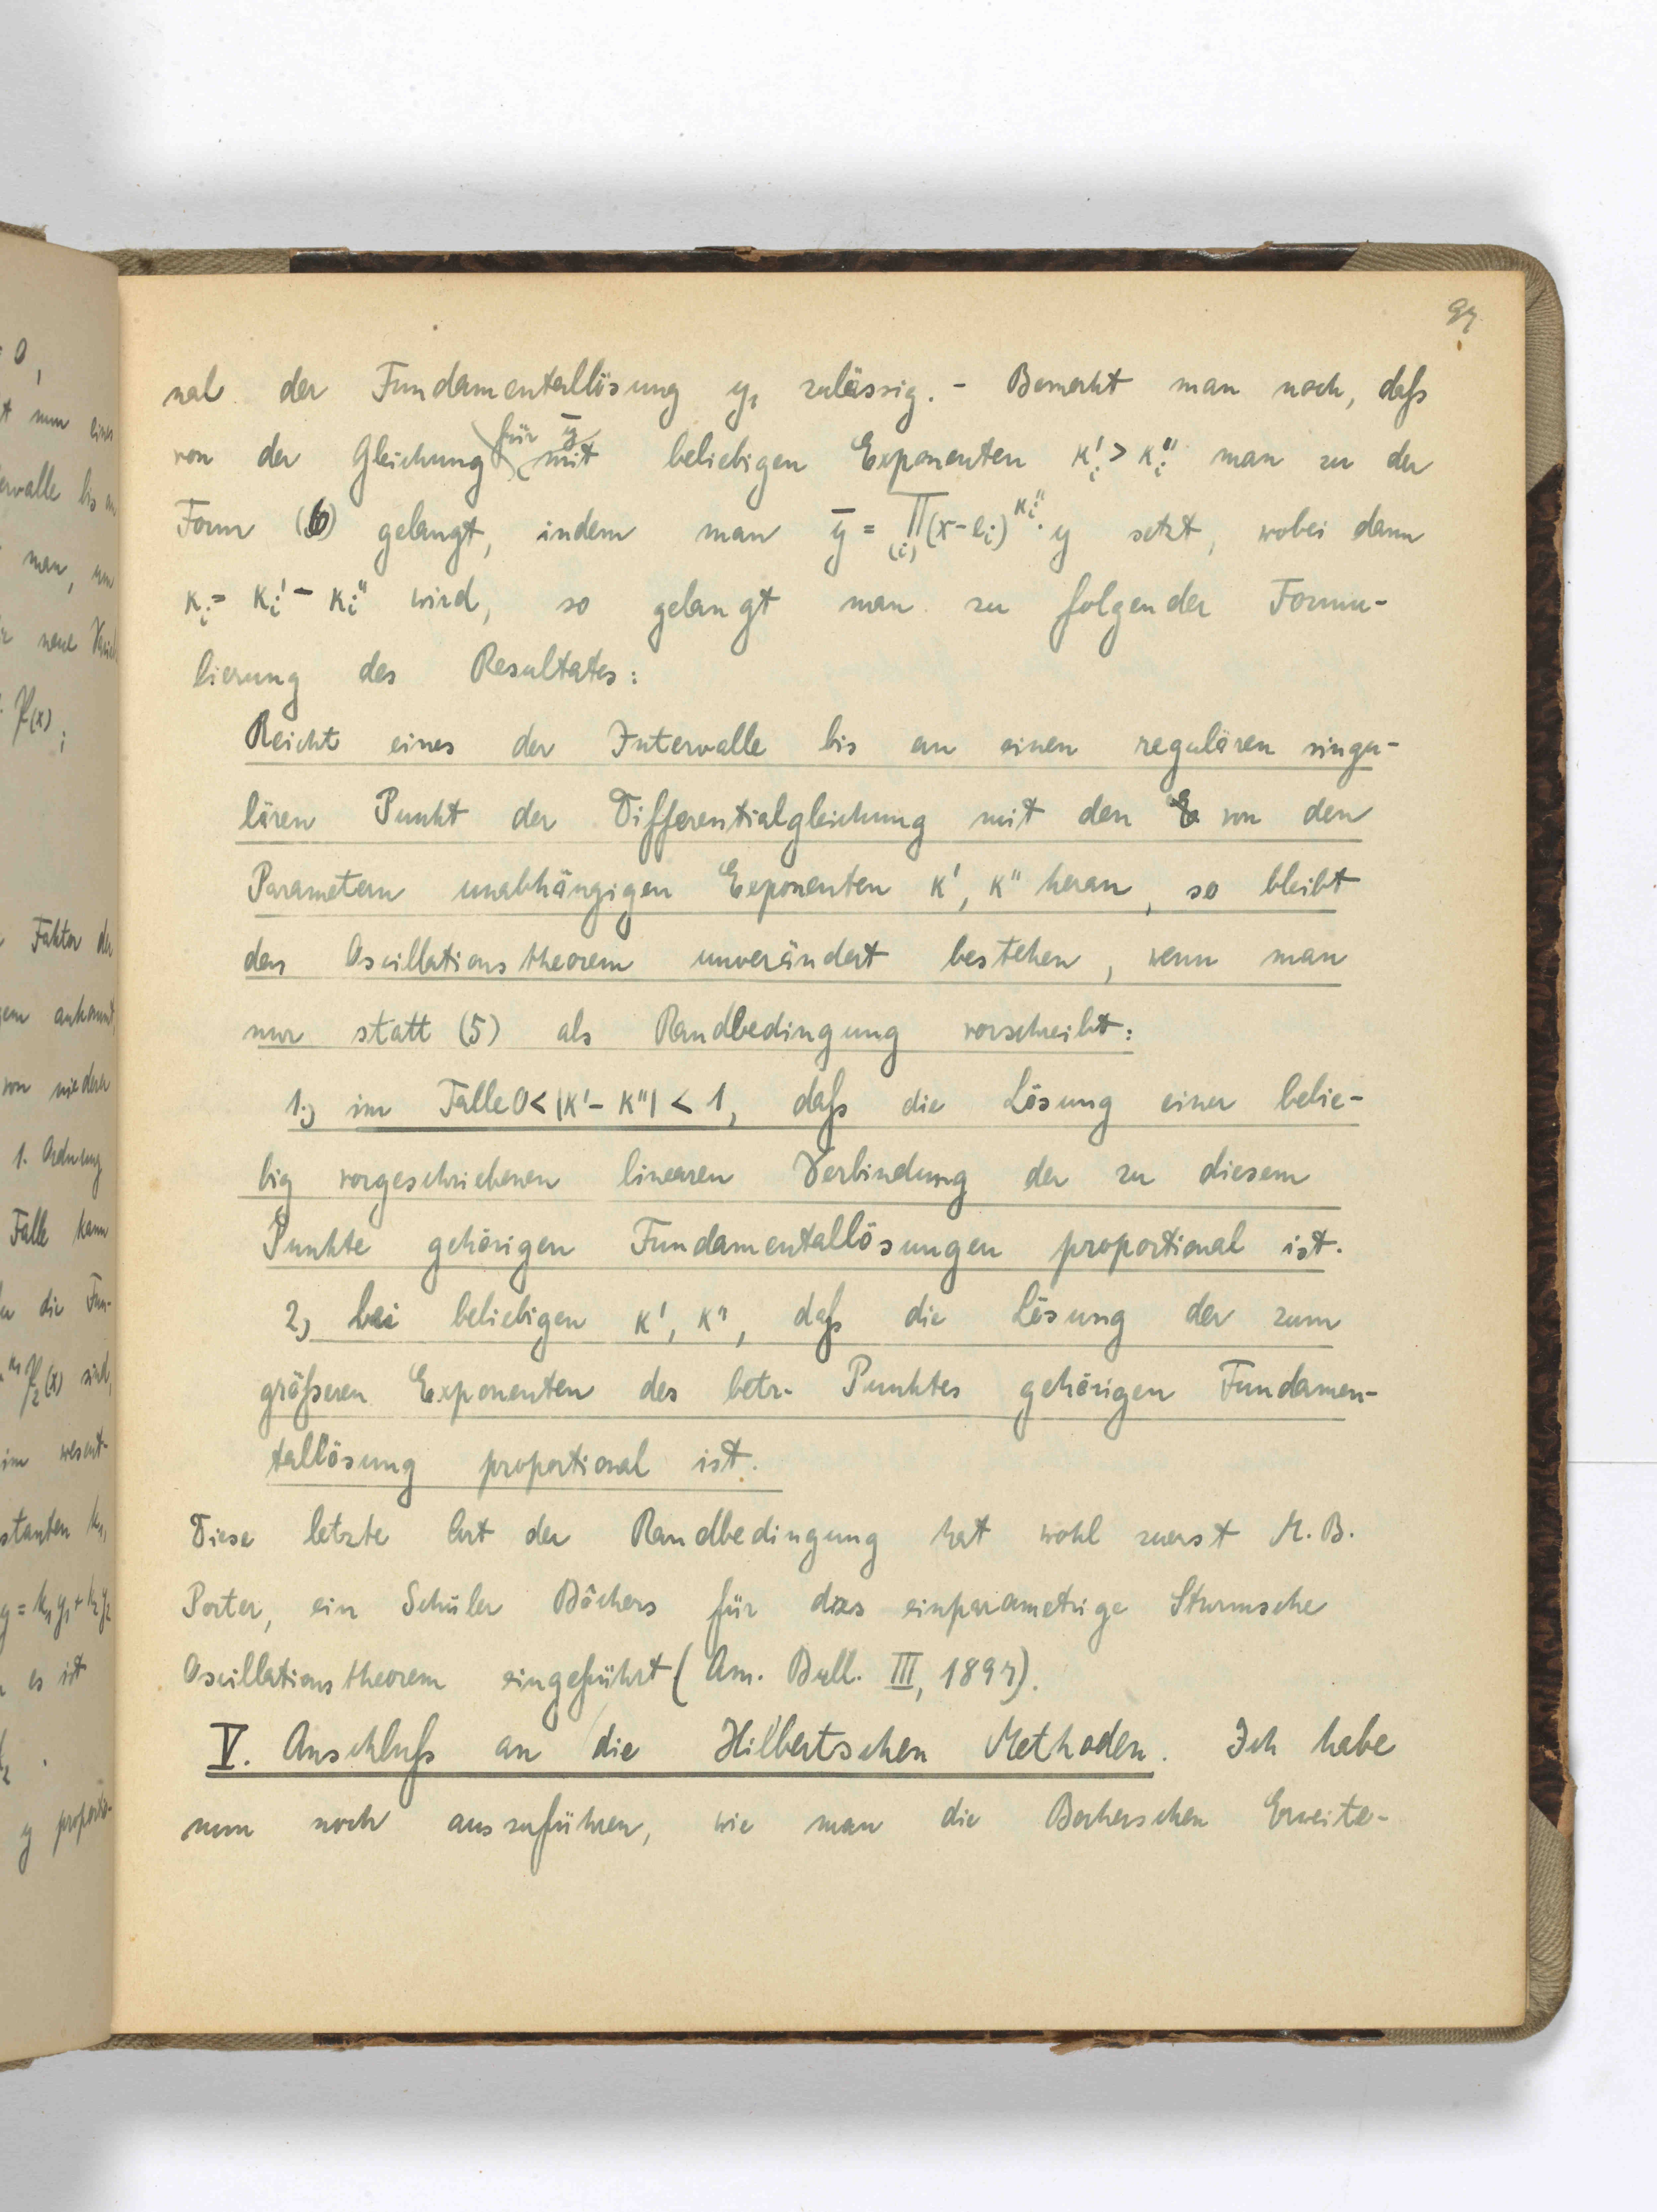 97
nal der Fundamentallösung y₁ zulässig. - Bemerkt man noch, daß
von der Gleichung für ȳ mit beliebigen Exponenten κ'ᵢ > κ''ᵢ man zu der
Form (6) gelangt, indem man ȳ = ∏₍ᵢ₎(x-eᵢ)^κᵢ''· y setzt, wobei dann
κᵢ = κᵢ' - κᵢ'' wird, so gelangt man zu folgender Formu-
lierung des Resultates:
Reicht eines der Intervalle bis an einen regulären singu-
lären Punkt der Differentialgleichung mit den von den
Parametern unabhängigen Exponenten κ', κ'' heran, so bleibt
das Oscillationstheorem unverändert bestehen, wenn man
nur statt (5) als Randbedingung vorschreibt:
1.) im Falle 0 < |κ' - κ''| < 1, daß die Lösung einer belie-
big vorgeschriebenen linearen Verbindung der zu diesem
Punkte gehörigen Fundamentallösungen proportional ist.
2) bei beliebigen κ', κ'', daß die Lösung der zum
größeren Exponenten des betr. Punktes gehörigen Fundamen-
tallösung proportional ist.
Diese letzte Art der Randbedingung hat wohl zuerst M. B.
Porter, ein Schüler Bôchers für das einparametrige Sturmsche
Oscillationstheorem eingeführt (Am. Bull. III, 1897).
V. Anschluß an die Hilbertschen Methoden. Ich habe
nun noch auszuführen, wie man die Bocherschen Erweite-